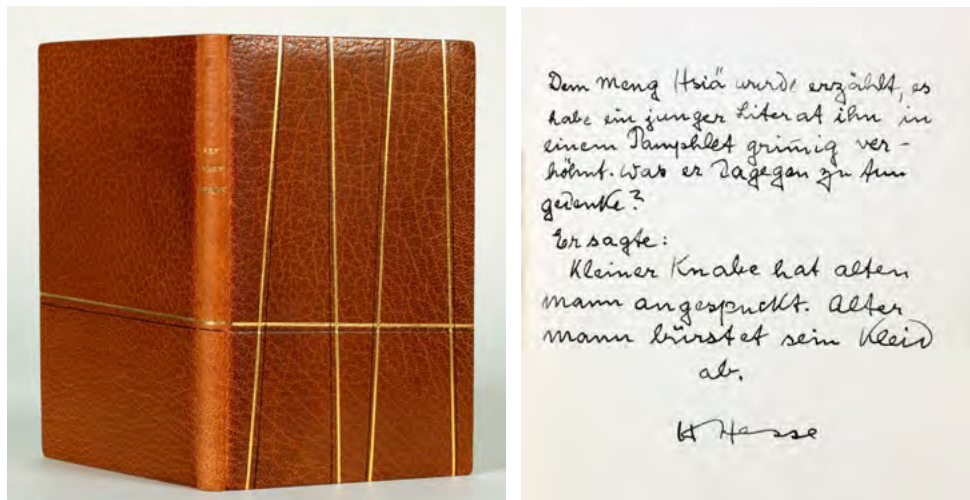 Dem Meng Hsiä wurde erzählt, es
habe ein junger Literat ihn in
einem Pamphlet grim̄ig ver-
höhnt. Was er dagegen zu tun
gedenke?
Er sagte:
Kleiner Knabe hat alten
Mann angespuckt. Alter
Mann bürstet sein Kleid
ab.
H Hesse